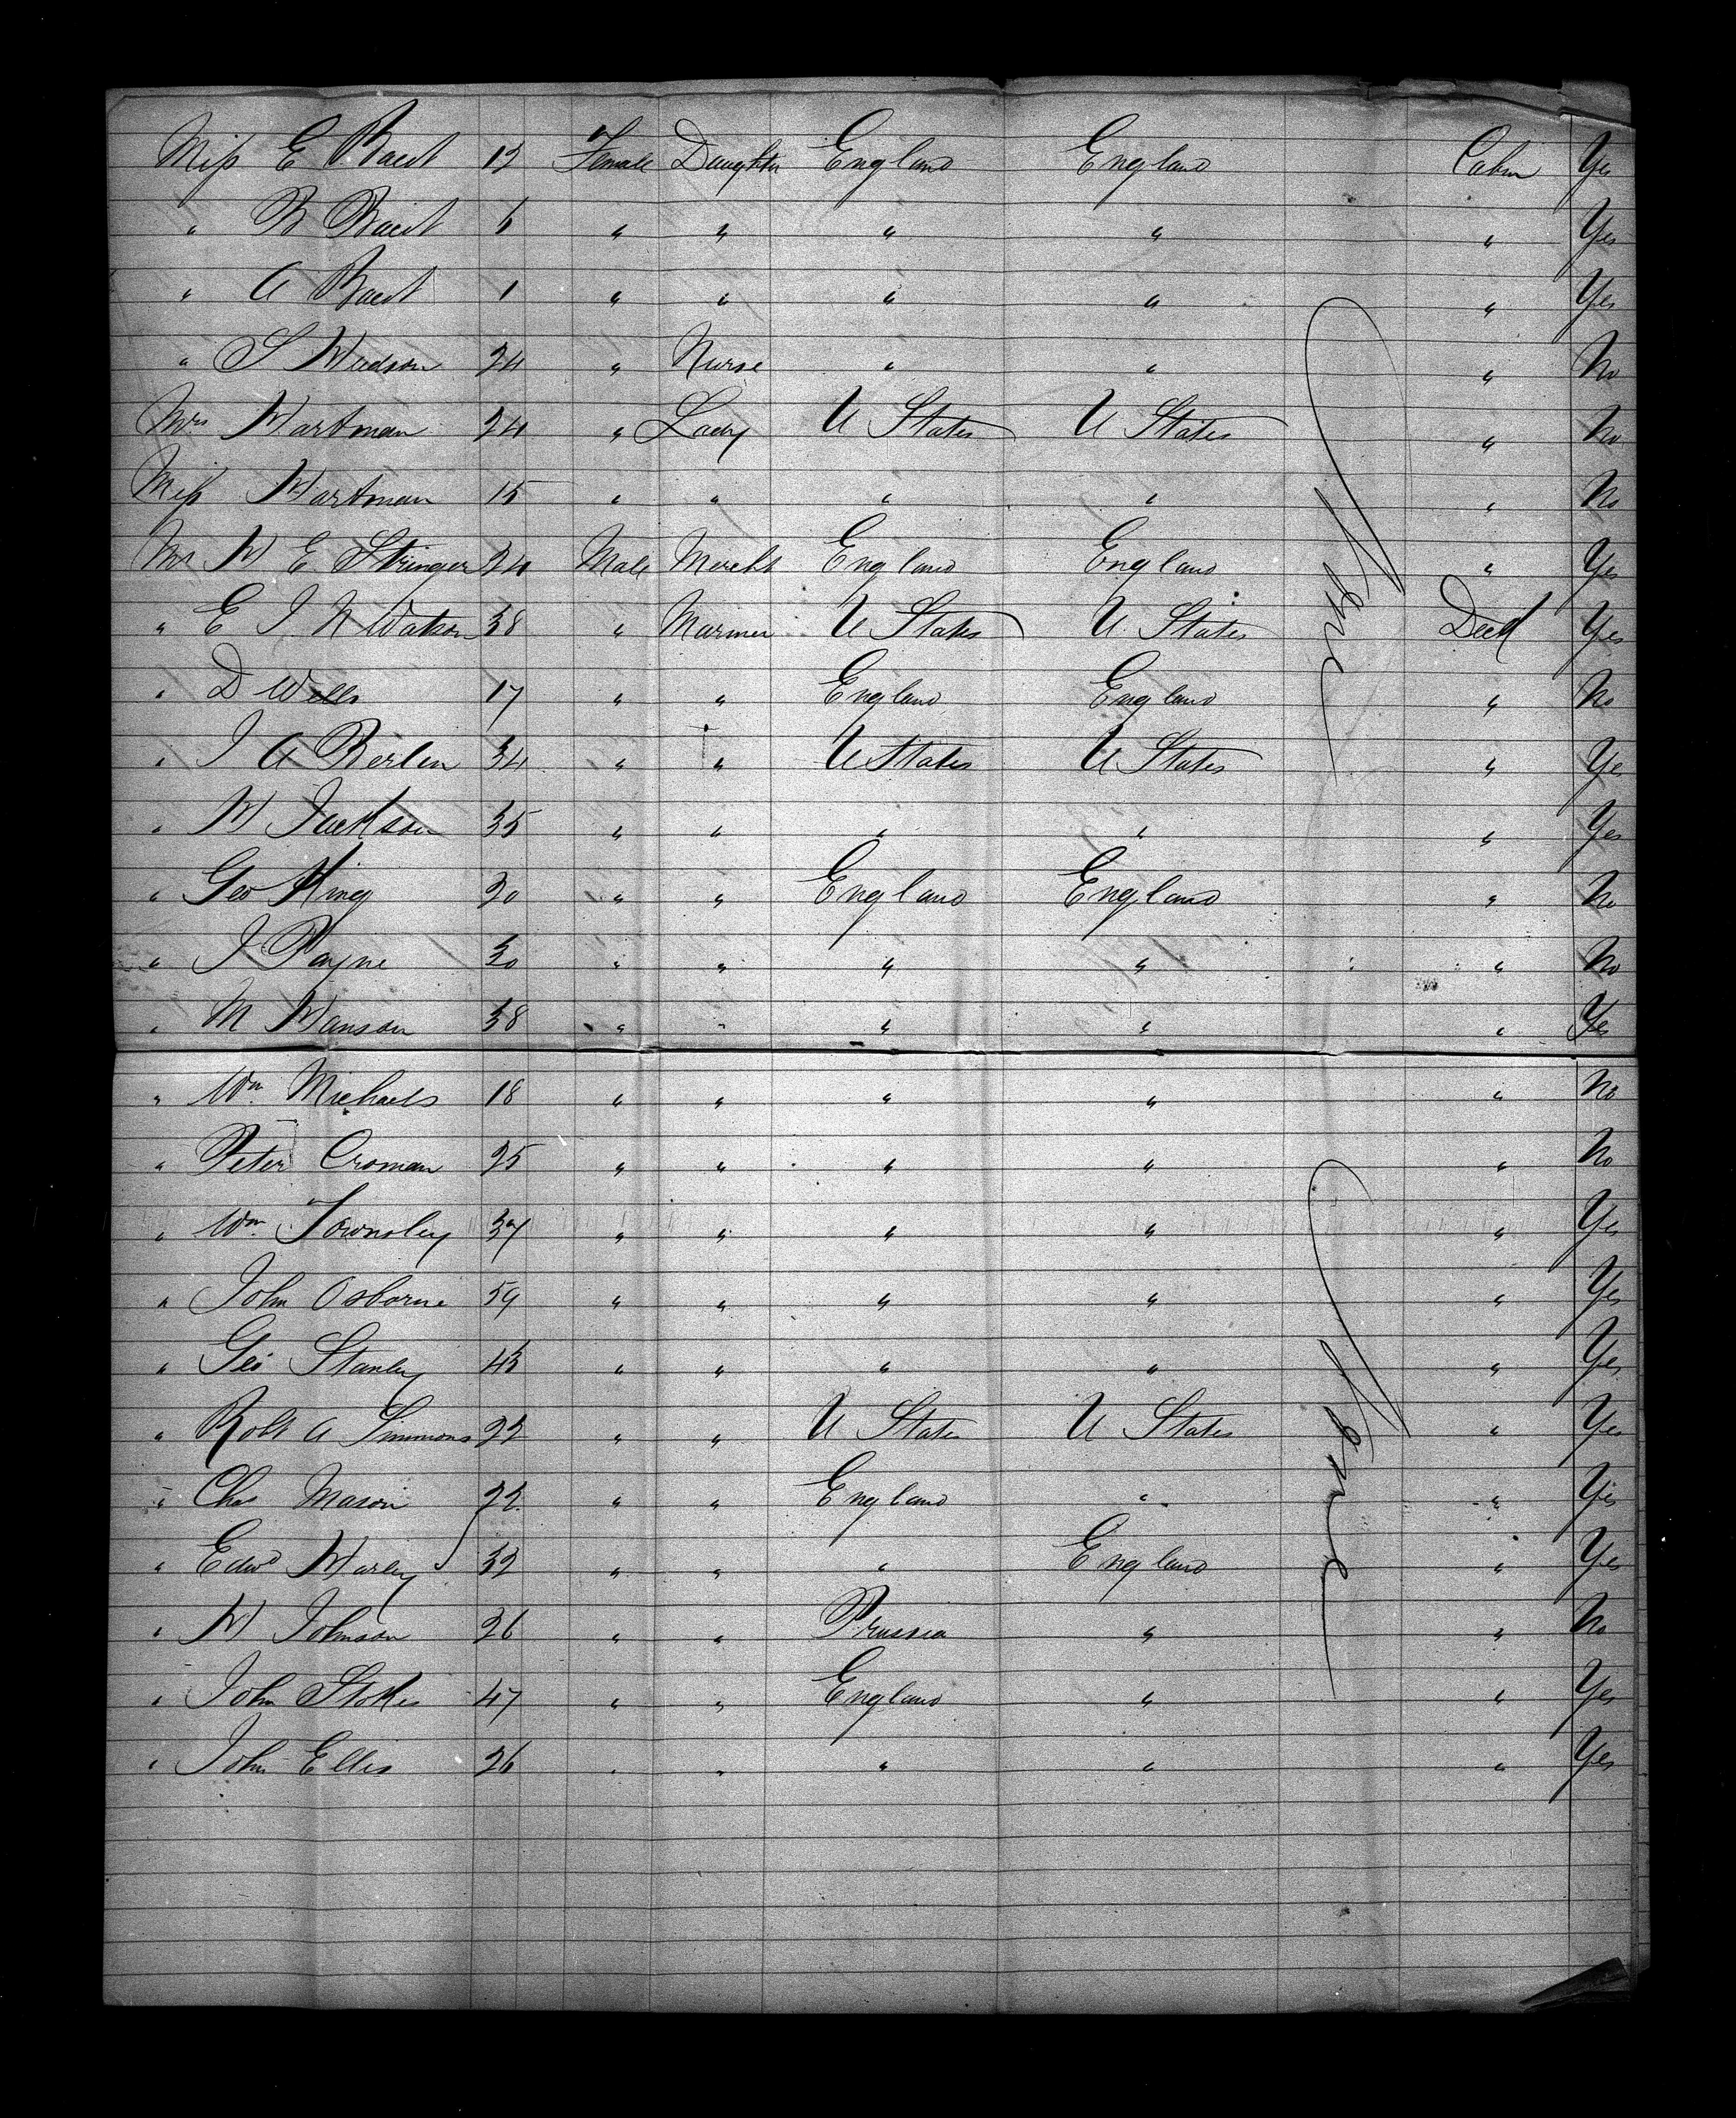 Miss E Bacot 13 Female Daughter England England Cabin Yes
" B Bacot 6 " " " " " Yes
" A Bacot 1 " " " " " Yes
" S Hudson 24 " Nurse " " " No
Mrs Hartman 24 " Lady U States U States " No
Miss Hartman 15 " " " " " No
Mr H E Stringer 24 Male Mercht England England " Yes
" E J N Watson 38 " Mariner U States U States Deck Yes
" D Wells 17 " " England England " No
" J A Berlin 34 " " U States U States " Yes
" H Jackson 35 " " " " " Yes
" Geo King 20 " " England England " No
" J Payne 30 " " " " " No
" M Hanson 38 " " " " " Yes
" Wm Michaels 18 " " " " " No
" Peter Croman 25 " " " " " No
" Wm Townsley 37 " " " " " Yes
" John Osborne 59 " " " " " Yes
" Geo Stanley 43 " " " " " Yes
" Robt A Simmons 22 " " U States U States " Yes
" Chas Mason 22 " " England " " Yes
" Edwd Harley 32 " " " England " Yes
" H Johnson 26 " " Prussia " " No
" John Stokes 47 " " England " " Yes
" John Ellis 26 " " " " " Yes
None
None